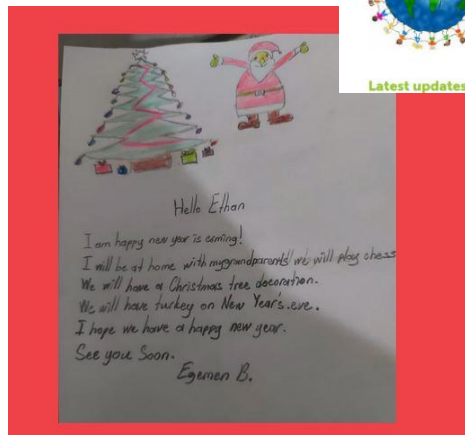 Latest updates
Hello Ethan
I am happy new year is coming!
I will be at home with my grandparents we will play chess
We will have a Christmas tree decoration.
We will have turkey on New Year's eve.
I hope we have a happy new year.
See you Soon.
Egemen B.